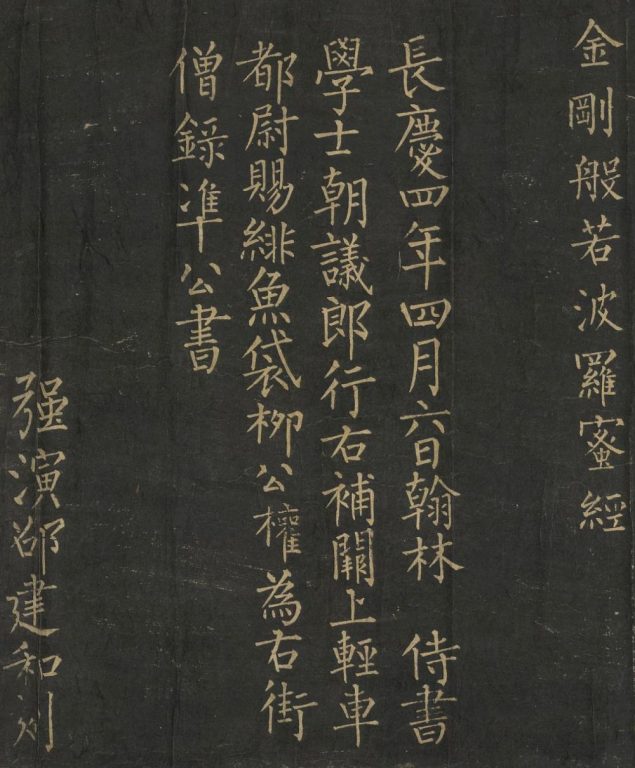 金剛般若波羅蜜經
長慶四年四月六日翰林 侍書
學士朝議郎行右補闕上輕車
都尉賜緋魚袋柳公權為右街
僧錄準公書
强演邵建和刻